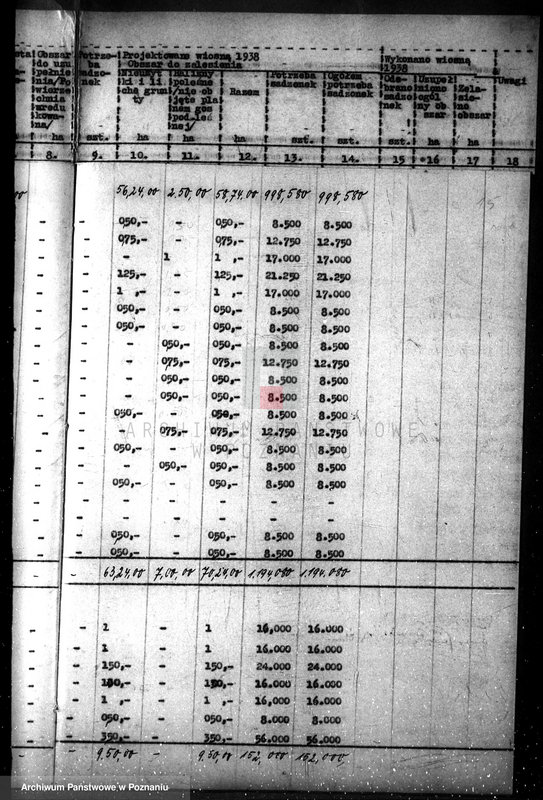 Obszar Potrze- Projektowano wiosną 1938 Wykonano wiosną
do uzu ba Obszar do zalesienia 1938 Uwagi
pełnie sadzo- Nieużyt Halizny Razem Potrzeba Ogółem Ode- Uzupeł Zale-
nia/Po nek ki i li- poleśne sadzonek potrzeba brano niono sio-
wierz chę grun /nie ob sadzonek sadzo ogól no
chnia ty jęte pla nek ny ob obszar
zredu nem gos szar
kowa- pod.leś
na/ nej/
ha szt. ha ha ha szt. szt. szt. ha ha
8. 9. 10. 11. 12. 13. 14. 15 16 17 18
56,24,00 2.50,00 58,74,00 998,580 998,580
- - 050,- - 050,- 8.500 8.500
- - 075,- - 075,- 12.750 12.750
- - - 1 1 ,- 17.000 17.000
- - 125,- - 125,- 21.250 21.250
- - 1 ,- - 1 ,- 17.000 17.000
- - 050,- - 050,- 8.500 8.500
- - 050,- - 050,- 8.500 8.500
- - - 050,- 050,- 8.500 8.500
- - - 075,- 075,- 12.750 12.750
- - - 050,- 050,- 8.500 8.500
- - - 050,- 050,- 8.500 8.500
- - 050,- - 050,- 8.500 8.500
- - - 075,- 075,- 12.750 12.750
- - 050,- - 050,- 8.500 8.500
- - - 050,- 050,- 8.500 8.500
- - 050,- - 050,- 8.500 8.500
- - - - - - -
- - - - - - -
- - 050,- - 050,- 8.500 8.500
- - 050,- - 050,- 8.500 8.500
- - 63,24,00 7,00,00 70,24,00 1.194,080 1.194,080
- - 1 - 1 16,000 16.000
- - 1 - 1 16.000 16.000
- - 150,- - 150,- 24.000 24.000
- - - 16.000 16.000
- - 1 ,- - 1 ,- 16,000 16.000
- - 050,- - 050,- 8.000 8.000
- - 350,- - 350,- 56.000 56.000
- - 9,50,00 - 9,50,00 152,000 152,000
ARCHIWUM PAŃSTWOWE
W POZNANIU
Archiwum Państwowe w Poznaniu